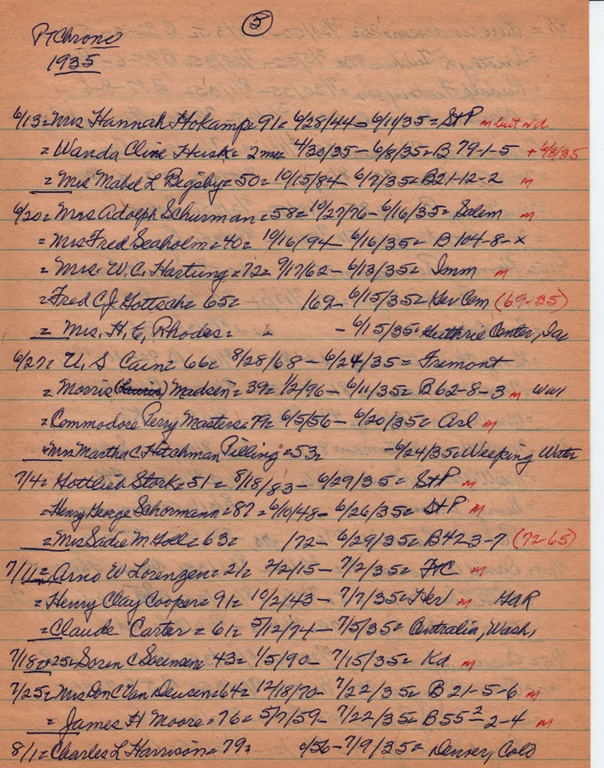 5
Pt Chrono
1935
6/13= Mrs Hannah Hokamp= 91= 6/28/44-6/11/35= St P m but nd
= Wanda Cline Husk= 2 mo= 4/30/35-6/8/35= B 79-1-5 + 6/8/35
= Mrs Mabel L Begaby= 50= 10/15/84-6/7/35= B21-12-2 m
6/20= Mrs Adolph Schurman= 58= 10/27/76-6/16/35= Salem m
= Mrs Fred Seaholm= 40= 10/16/94-6/16/35= B 104-8-x
= Mrs. W.C. Hartung= 72= 9/17/62-6/13/35= Imm m
= Fred C J Gottsch= 65= 169-6/15/35= Hev Cem (69-35)
= Mrs. H. E. Rhodes= -6/15/35= Guthrie Center, Ia
6/27= U. S Cain= 66= 8/28/68-6/24/35= Fremont
= Morris Madsen= 39= 1/2/96-6/11/35= B62-8-3 m WWI
= Commodore Perry Masters= 79= 6/5/56-6/20/35= Arl m
= Mrs Martha C Hitchman Pilling= 53= -6/24/35= Weeping Water
7/4= Gottlieb Stork= 51= 8/18/83-6/29/35= St P m
= Henry George Schormann= 87= 6/10/48-6/26/35= St P m
= Mrs Sadie M Holl= 63= 172-6/29/35= B42-3-7 (72-65)
7/11= Arno W Lorenzen= 21= 2/2/15-7/2/35= FC m
= Henry Clay Cooper= 91= 10/2/43-7/7/35= Her m GAR
= Claude Carter= 61= 5/12/74-7/5/35= Centralia, Wash.
7/18&25= Soren C Sorensen= 43= 1/5/90-7/15/35= Ka m
7/25= Mrs Don C Van Deusen= 64= 12/18/70-7/22/35= B 21-5-6 m
= James H Moore= 76= 5/7/59-7/22/35= B55²-2-4 m
8/1= Charles L Harrison= 79= 1/56-7/9/35= Denver, Colo